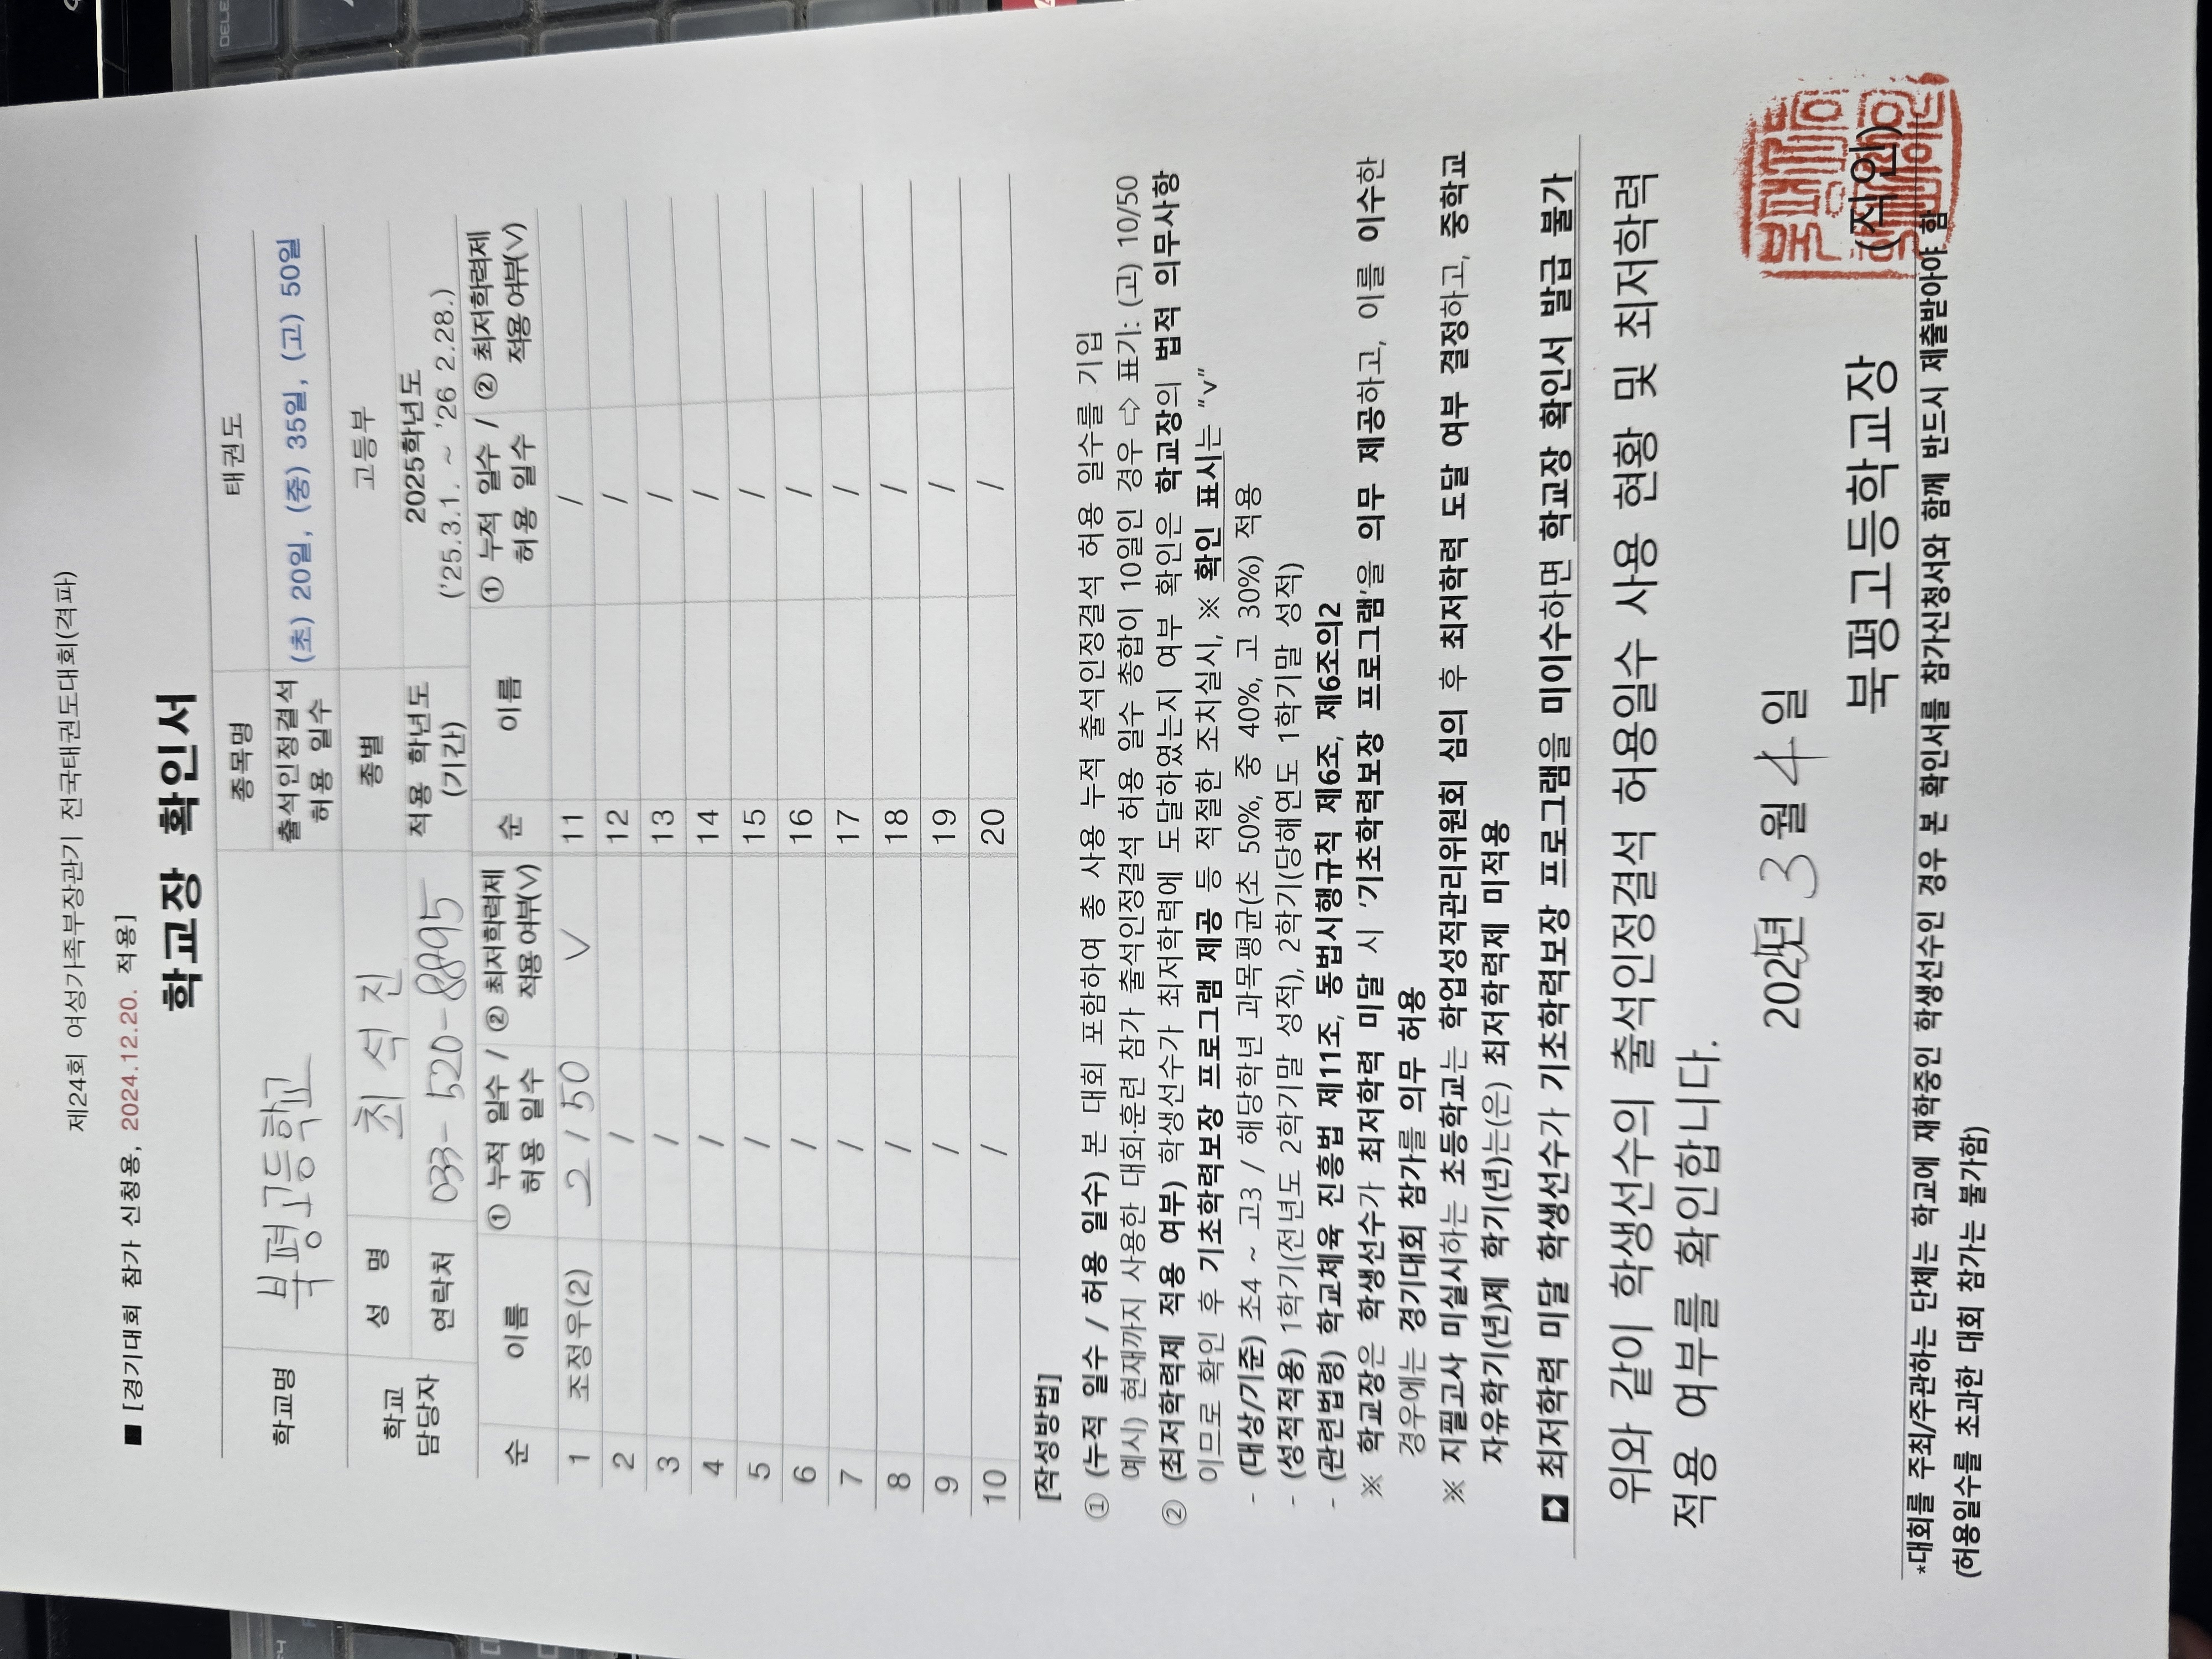 제24회 여성가족부장관기 전국태권도대회(격파)
■ [경기대회 참가 신청용, 2024.12.20. 적용]
학교장 확인서
학교명 북평고등학교 종목명 태권도
출석인정결석 허용 일수 (초) 20일, (중) 35일, (고) 50일
학교 담당자 성 명 최석진 종별 고등부
연락처 033-520-8895 적용 학년도 (기간) 2025학년도 ('25.3.1. ~ '26 2.28.)
순 이름 ① 누적 일수 / 허용 일수 ② 최저학력제 적용 여부(V) 순 이름 ① 누적 일수 / 허용 일수 ② 최저학력제 적용 여부(V)
1 조정우(2) 2 / 50 V 11 /
2 / 12 /
3 / 13 /
4 / 14 /
5 / 15 /
6 / 16 /
7 / 17 /
8 / 18 /
9 / 19 /
10 / 20 /
[작성방법]
① (누적 일수 / 허용 일수) 본 대회 포함하여 총 사용 누적 출석인정결석 허용 일수를 기입
예시) 현재까지 사용한 대회·훈련 참가 출석인정결석 허용 일수 총합이 10일인 경우 ⇨ 표기: (고) 10/50
② (최저학력제 적용 여부) 학생선수가 최저학력에 도달하였는지 여부 확인은 학교장의 법적 의무사항
이므로 확인 후 기초학력보장 프로그램 제공 등 적절한 조치실시, ※ 확인 표시는 "v"
- (대상/기준) 초4 ~ 고3 / 해당학년 과목평균(초 50%, 중 40%, 고 30%) 적용
- (성적적용) 1학기(전년도 2학기말 성적), 2학기(당해연도 1학기말 성적)
- (관련법령) 학교체육 진흥법 제11조, 동법시행규칙 제6조, 제6조의2
※ 학교장은 학생선수가 최저학력 미달 시 '기초학력보장 프로그램'을 의무 제공하고, 이를 이수한
경우에는 경기대회 참가를 의무 허용
※ 지필고사 미실시하는 초등학교는 학업성적관리위원회 심의 후 최저학력 도달 여부 결정하고, 중학교
자유학기(년)제 학기(년)는(은) 최저학력제 미적용
➡ 최저학력 미달 학생선수가 기초학력보장 프로그램을 미이수하면 학교장 확인서 발급 불가
위와 같이 학생선수의 출석인정결석 허용일수 사용 현황 및 최저학력
적용 여부를 확인합니다.
2025년 3월 4일
북평고등학교장 (직인)
*대회를 주최/주관하는 단체는 학교에 재학중인 학생선수인 경우 본 확인서를 참가신청서와 함께 반드시 제출받아야 함
(허용일수를 초과한 대회 참가는 불가함)